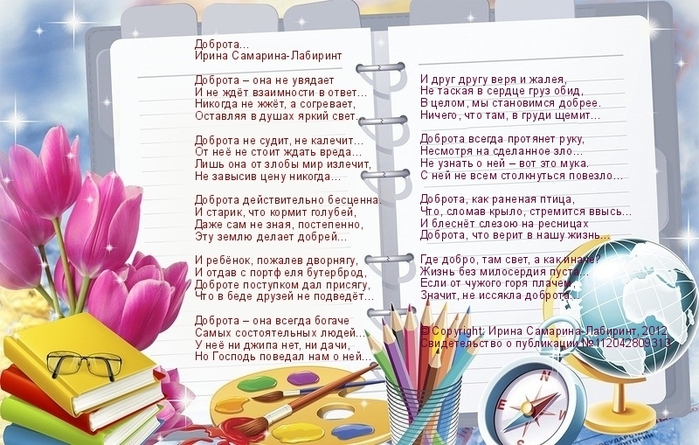 Доброта...
Ирина Самарина-Лабиринт
Доброта – она не увядает
И не ждёт взаимности в ответ...
Никогда не жжёт, а согревает,
Оставляя в душах яркий свет...
Доброта не судит, не калечит...
От неё не стоит ждать вреда...
Лишь она от злобы мир излечит,
Не завысив цену никогда...
Доброта действительно бесценна.
И старик, что кормит голубей,
Даже сам не зная, постепенно,
Эту землю делает добрей...
И ребёнок, пожалев дворнягу,
И отдав с портфеля бутерброд,
Доброте поступком дал присягу,
Что в беде друзей не подведёт...
Доброта – она всегда богаче
Самых состоятельных людей...
У неё ни джипа нет, ни дачи,
Но Господь поведал нам о ней...
И друг другу веря и жалея,
Не таская в сердце груз обид,
В целом, мы становимся добрее.
Ничего, что там, в груди щемит...
Доброта всегда протянет руку,
Несмотря на сделанное зло...
Не узнать о ней – вот это мука.
С ней не всем столкнуться повезло...
Доброта, как раненая птица,
Что, сломав крыло, стремится ввысь...
И блеснёт слезою на ресницах
Доброта, что верит в нашу жизнь...
Где добро, там свет, а как иначе?
Жизнь без милосердия пуста...
Если от чужого горя плачем,
Значит, не иссякла доброта.
© Copyright: Ирина Самарина-Лабиринт, 2012
Свидетельство о публикации №112042809313
N
E
S